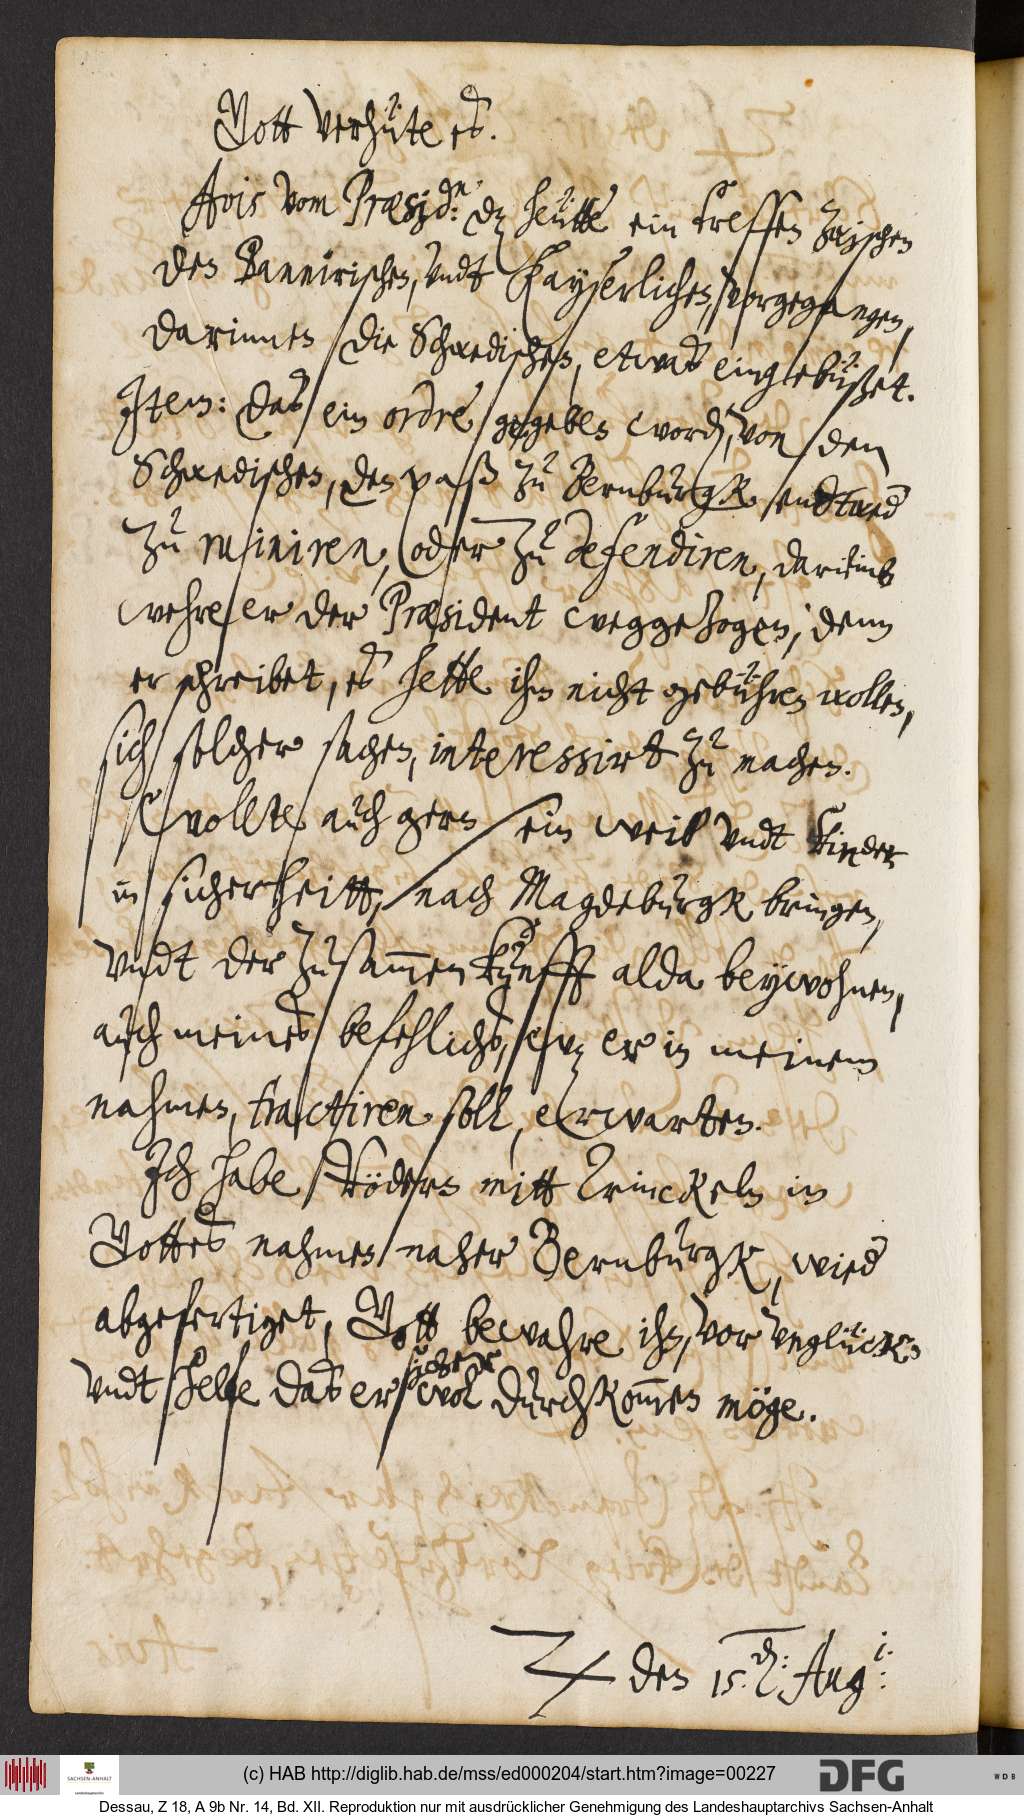 Gott verhüte es.
Avis vom Præsid:en: dz heütte ein treffen zwischen
den Bannirischen, vndt Kayserlichen, vorgegangen,
darinnen die Schwedischen, etwas eingebüßet.
Item: das ein ordre gegeben word, von den
Schwedischen, den paß zu Bernburgk entwed
zu ruiniren, oder zu defendiren, darumb
wehre er der Præsident weggezogen, denn
er schreibet, es hette ihm nicht gebühren wollen,
sich solcher sachen, interessirt zu machen.
Er wollte auch gern sein weib vndt kinder
in sicherheitt, nach Magdeburgk bringen,
vndt der zusammenkunfft alda beywohnen,
auch meines befehlichs, waz er in meinem
nahmen, tractiren soll, erwarten.
Ich habe Rödern mitt Trinckeln in
Gottes nahmen naher Bernburgk, wied
abgefertiget, Gott bewahre ihn, vor vnglück
sicher
vndt helfe das er wol durchkommen möge.
♃ den 15.d: Augi:
(c) HAB http://diglib.hab.de/mss/ed000204/start.htm?image=00227
SACHSEN-ANHALT
DFG
WDB
Dessau, Z 18, A 9b Nr. 14, Bd. XII. Reproduktion nur mit ausdrücklicher Genehmigung des Landeshauptarchivs Sachsen-Anhalt